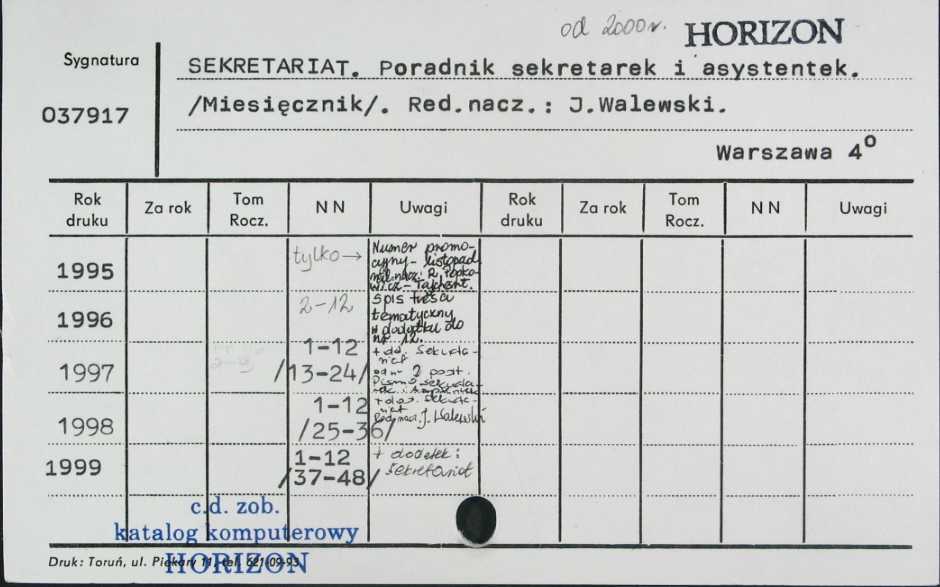 od 2000r. HORIZON
Sygnatura
SEKRETARIAT. Poradnik sekretarek i asystentek.
037917
/Miesięcznik/. Red.nacz.: J.Walewski.
Warszawa 4º
Rok druku Za rok Tom Rocz. NN Uwagi Rok druku Za rok Tom Rocz. NN Uwagi
1995 tylko →
Numer promo-
cyjny - listopad
red. nacz. R.
1996 2-12
spis treści
tematyczny
w dodatku do
nr. 12.
1997 1-12
/13-24/
+ dod. Sekreta-
riat
od nr 2 podt.
1998 1-12
/25-36/
+ dod. Sekreta-
riat
Red. nacz. J. Walewski
1999 1-12
/37-48/
+ dodatek:
Sekretariat
c.d. zob.
katalog komputerowy
HORIZON
Druk: Toruń, ul. Piekary 11, tel. 621-09-93